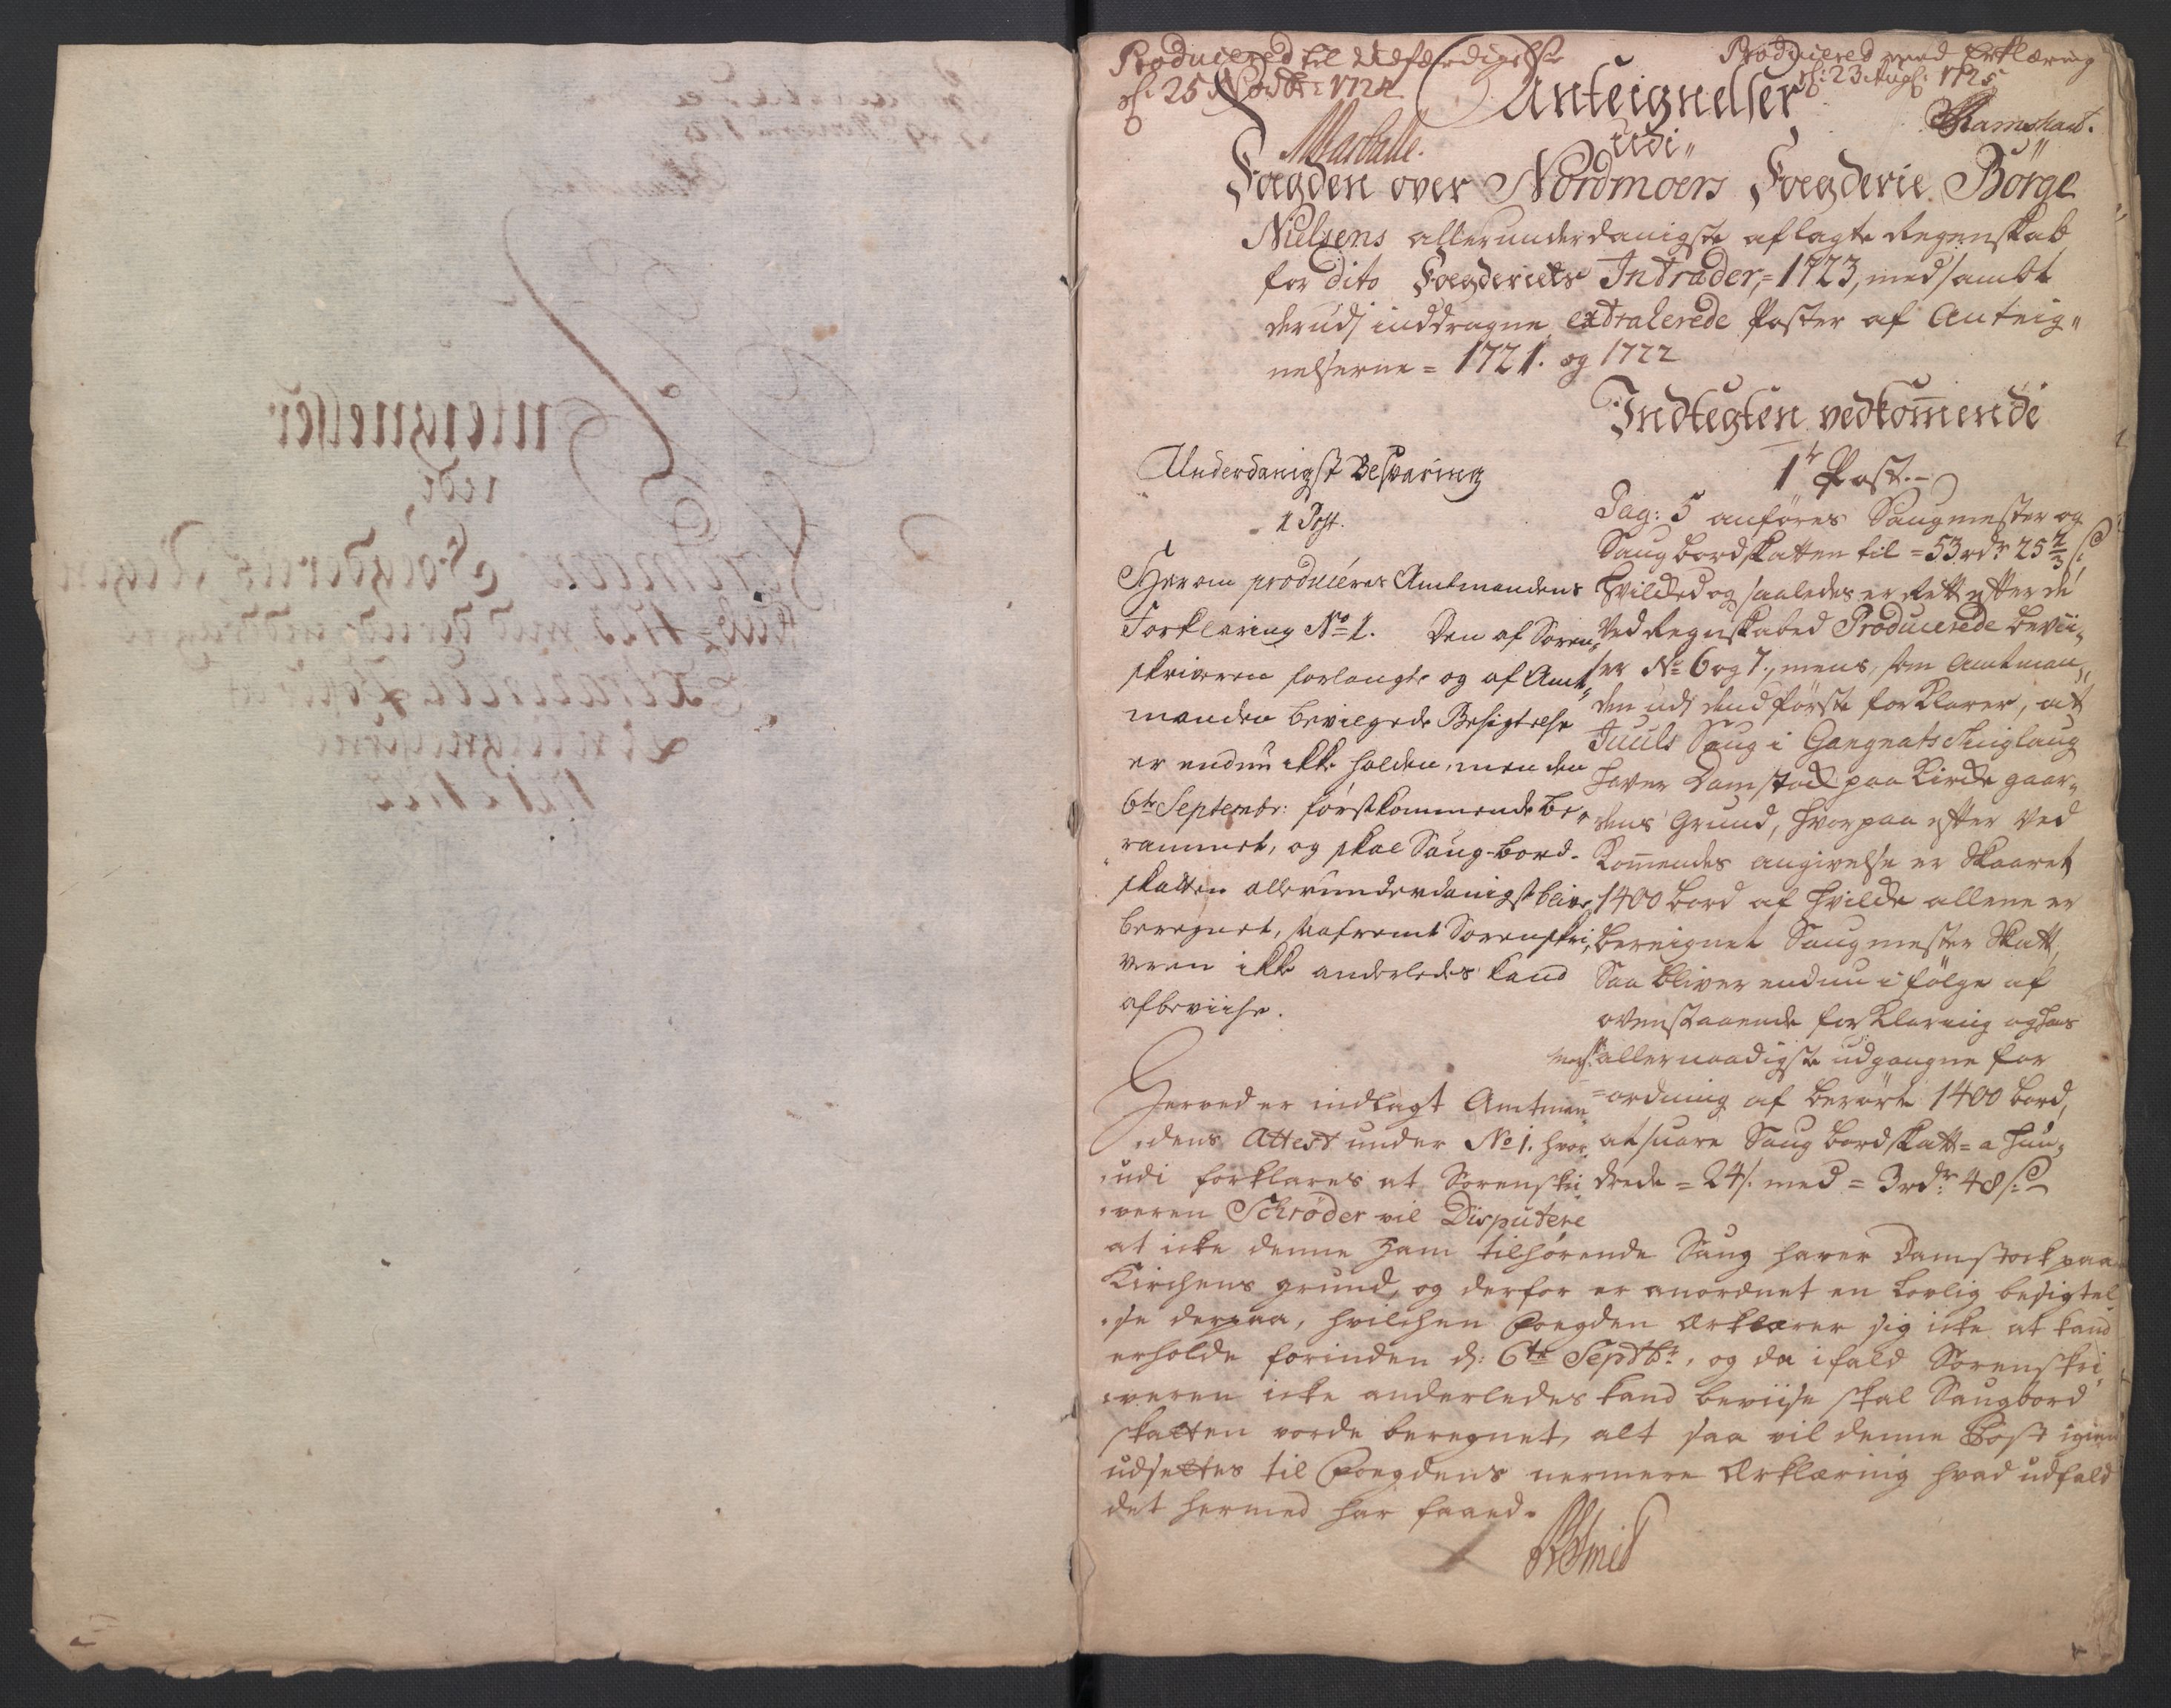 Producered til Udfærdigelse
d: 25 Novbr: 1724
Producered med Erklæring
d: 23 Augs: 1725
Ramshart.
Anteignelser
udi
Fogden over Nordmoers Fogderie Börge
Nielsens allerunderdanigste aflagte Regenskab
for dito Fogderiets Intrader, = 1723, med samt
derudj inddragne extraherede Poster af Anteig„
nelserne = 1721. og 1722
Indtegten vedkom̄ende
1r Post.
Pag: 5 anföres Saugmester og
Saugbordskatten til = 53 rdr 25 2/3 s
hvilcked og saaledes er Rett efter de
ved Regnskabed Producerede bevii„
ser No 6 og 7., mens, som Amtman„
den udj dend förste forklarer, at
Juuls Saug i Gangnats Tinglaug
haver Damstock paa Kircke gaar„
dens Grund, hvorpaa efter Ved
Kom̄endes angivelse er skaaret
1400 bord af hvilcke allene er
bereignet Saugmester Skatt,
Saa bliver endnu i fölge af
ovenstaaende forklaring og hans
Mayts: allernaadigste udgangne for
=ordning af berörte 1400 bord,
at svare Saug bordskatt = a hun„
drede = 24 s. med = 3 rdr: 48 s
Underdanigst Besvaring
1 Post.
Herom produceres Amtmandens
Forklaring No 1. Den af Soren„
skriveren forlangte og af Amt„
manden bevilgede Besigtelse
er endnu icke holden, men den
6te Septembr: förstkommende be„
rammet, og skal Saug-bord-
skatten allerunderdanigst blive
beregnet, saafremt Sorenskri„
veren ikke anderledes kand
afbeviise.
Herved er indlagt Amtman
„dens Attest under No 1. hvor„
„udi forklares at Sorenskri
„veren Schrøder vil Disputere
at icke denne ham tilhørende Saug haver Damstock paa
Kirchens grund, og derfor er anordnet en lovlig besigtel
„se derpaa, hvilchen Foegden Erklærer sig icke at kand
erholde forinden d: 6te Septbr:, og da ifald Sorenskri
„veren icke anderledes kand beviise skal Saugbord
skatten vorde beregnet, alt saa vil denne Post igien
udsettes til Foegdens nermere Erklæring hvad udfald
det hermed har faaed.